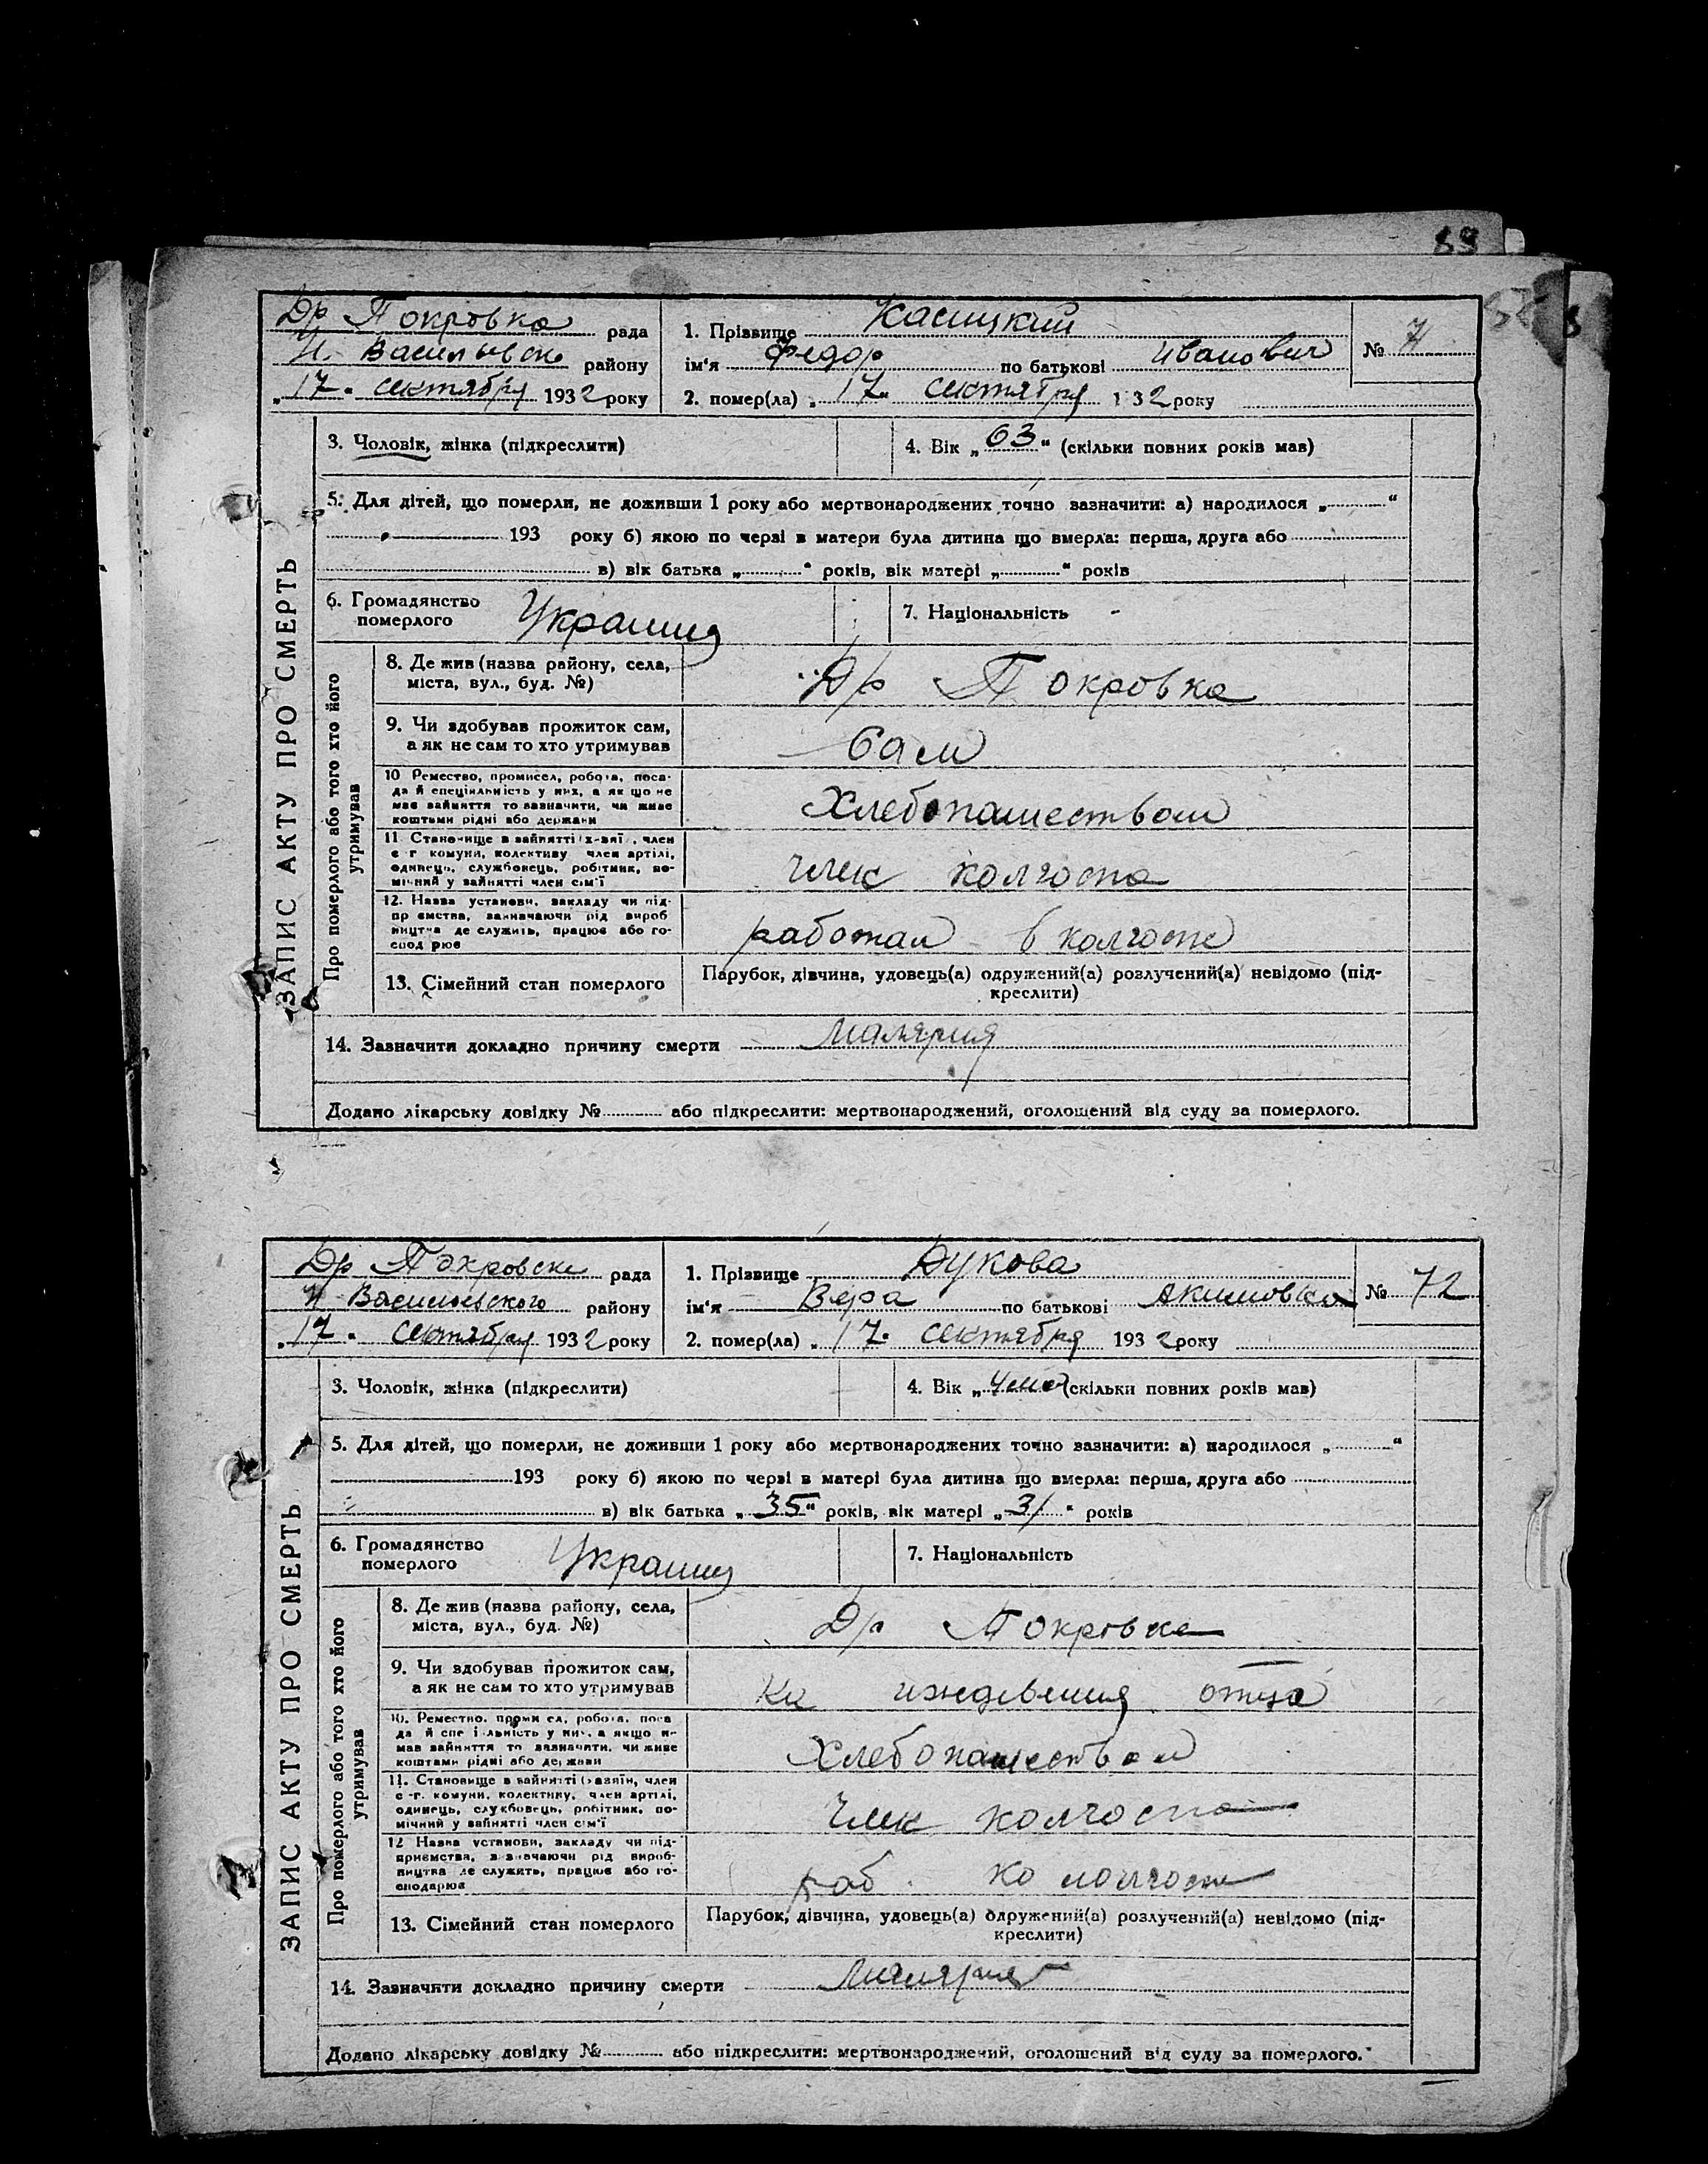 89
Др Покровка рада
Н. Васильевск району
„17" сентября 1932 року
1. Прізвище Касицкий
ім'я Федор по батькові Иванович
2. помер(ла) „17" сентября 1932 року
№ 71
ЗАПИС АКТУ ПРО СМЕРТЬ
3. Чоловік, жінка (підкреслити)
4. Вік „63" (скільки повних років мав)
5. Для дітей, що померли, не доживши 1 року або мертвонароджених точно зазначити: а) народилося „ "
193 року б) якою по черзі в матери була дитина що вмерла: перша, друга або
в) вік батька „ " років, вік матері „ " років
6. Громадянство
померлого Украиния
7. Національність -
Про померлого або того хто його
утримував
8. Де жив (назва району, села,
міста, вул., буд. №)
Др Покровка
9. Чи здобував прожиток сам,
а як не сам то хто утримував
Сам
10 Ремество, промисел, робота, поса-
да й спеціяльність у них, а як що не
має зайняття то зазначити, чи живе
коштами рідні або держави
Хлебопашеством
11. Становище в зайнятті, член
с г. комуни, колективу член артілі,
одинець, службовець, робітник, по-
мічний у зайнятті член сім'ї
член колгоспа
12. Назва установи, закладу чи під-
зазначаючи рід вироб
ництва де служить, працює або го-
работал в колгоспе
13. Сімейний стан померлого
Парубок, дівчина, удовець(а) одружений(а) розлучений(а) невідомо (під-
креслити)
14. Зазначити докладно причину смерти Малярия
Додано лікарську довідку № або підкреслити: мертвонароджений, оголошений від суду за померлого.
Др Покровск рада
Н Васильевского району
„17" сентября 1932 року
1. Прізвище Дукова
ім'я Вера по батькові Акимовна
2. помер(ла) „17" сентября 1932 року
№ 72
ЗАПИС АКТУ ПРО СМЕРТЬ
3. Чоловік, жінка (підкреслити)
4. Вік „ (скільки повних років мав)
5. Для дітей, що померли, не доживши 1 року або мертвонароджених точно зазначити: а) народилося „ "
193 року б) якою по черзі в матері була дитина що вмерла: перша, друга або
в) вік батька „35" років, вік матері „31" років
6. Громадянство
померлого Украиния
7. Національність
Про померлого або того хто його
утримував
8. Де жив (назва району, села,
міста, вул., буд. №)
Др Покровка
9. Чи здобував прожиток сам,
а як не сам то хто утримував
На иждевения отца
10. Ремество, робота, поса
да й у них, а якщо не
мав зайняття то зазначити, чи живе
коштами рідні або держави
Хлебопашеством
11. Становище в зайнятті, член
с-г. комуни, колективу, член артілі,
одинець, службовець, робітник, по-
мічний у зайнятті член сім'ї
член колгоспа
12 Назва установи, закладу чи під-
приємства, зазначаючи рід вироб-
ництва де служить, працює або го-
сподарює
раб.
13. Сімейний стан померлого
Парубок, дівчина, удовець(а) одружений(а) розлучений(а) невідомо (під-
креслити)
14. Зазначити докладно причину смерти Малярия
Додано лікарську довідку № або підкреслити: мертвонароджений, оголошений від суду за померлого.